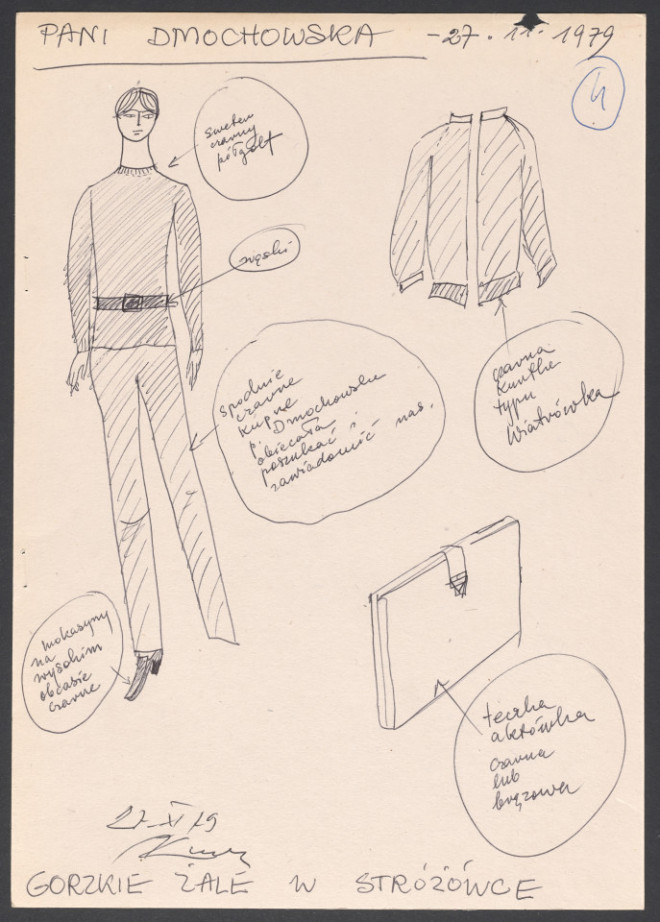 PANI DMOCHOWSKA - 27.11.1979
4
sweter
czarny
półgolf
wąski
spodnie
czarne
kupne
p. Dmochowska
obiecała
poszukać i
zawiadomić nas.
czarna
kurtka
typu
Wiatrówka
mokasyny
na
wysokim
obcasie
czarne
teczka
aktówka
czarna
lub
brązowa
27 XI 79
GORZKIE ŻALE W STRÓŻÓWCE